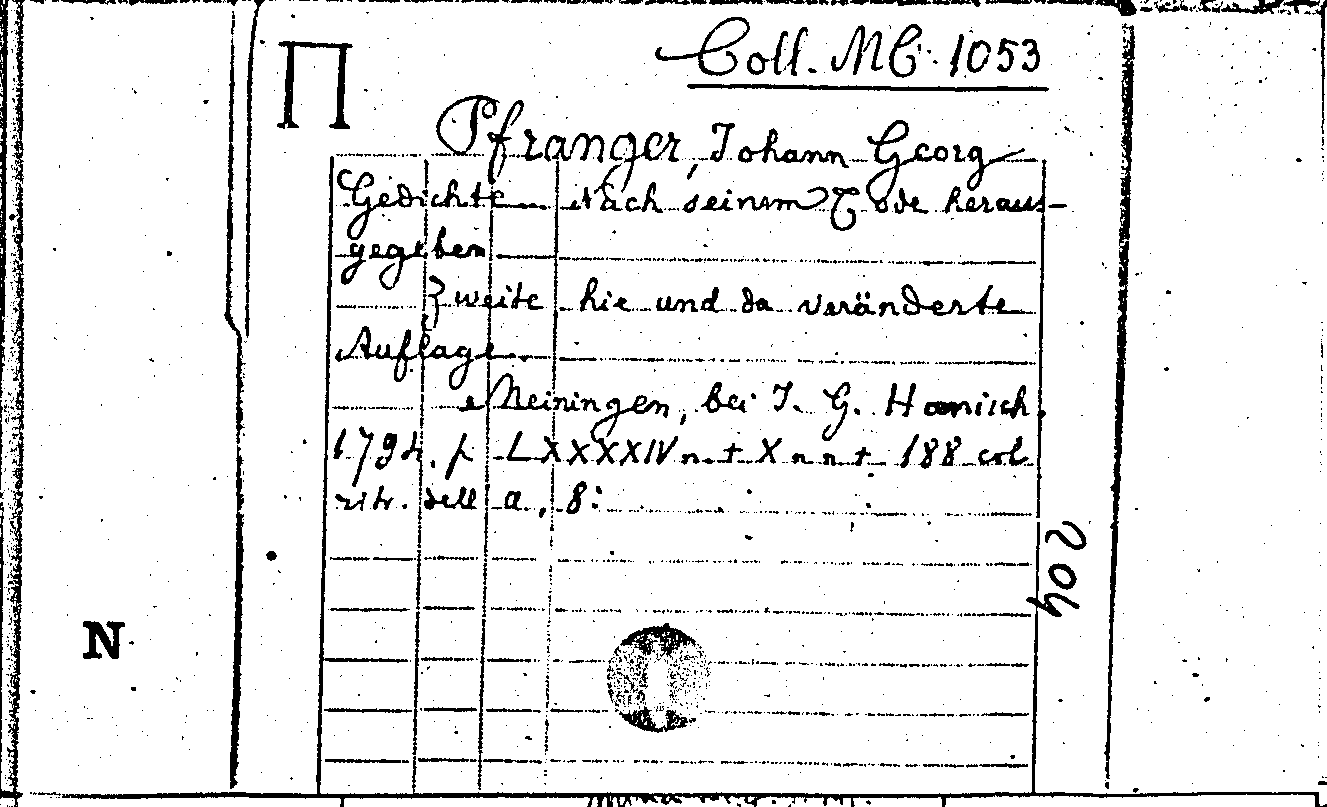 Π
Coll. MC. 1053
Pfranger, Johann Georg
Gedichte. Nach seinem Tode heraus-
gegeben
Zweite hie und da veränderte
Auflage.
Meiningen, bei J. G. Hanisch.
1794. p LXXXXIV n. + X n n + 188 col
ritr. dell a, 8:
204
N